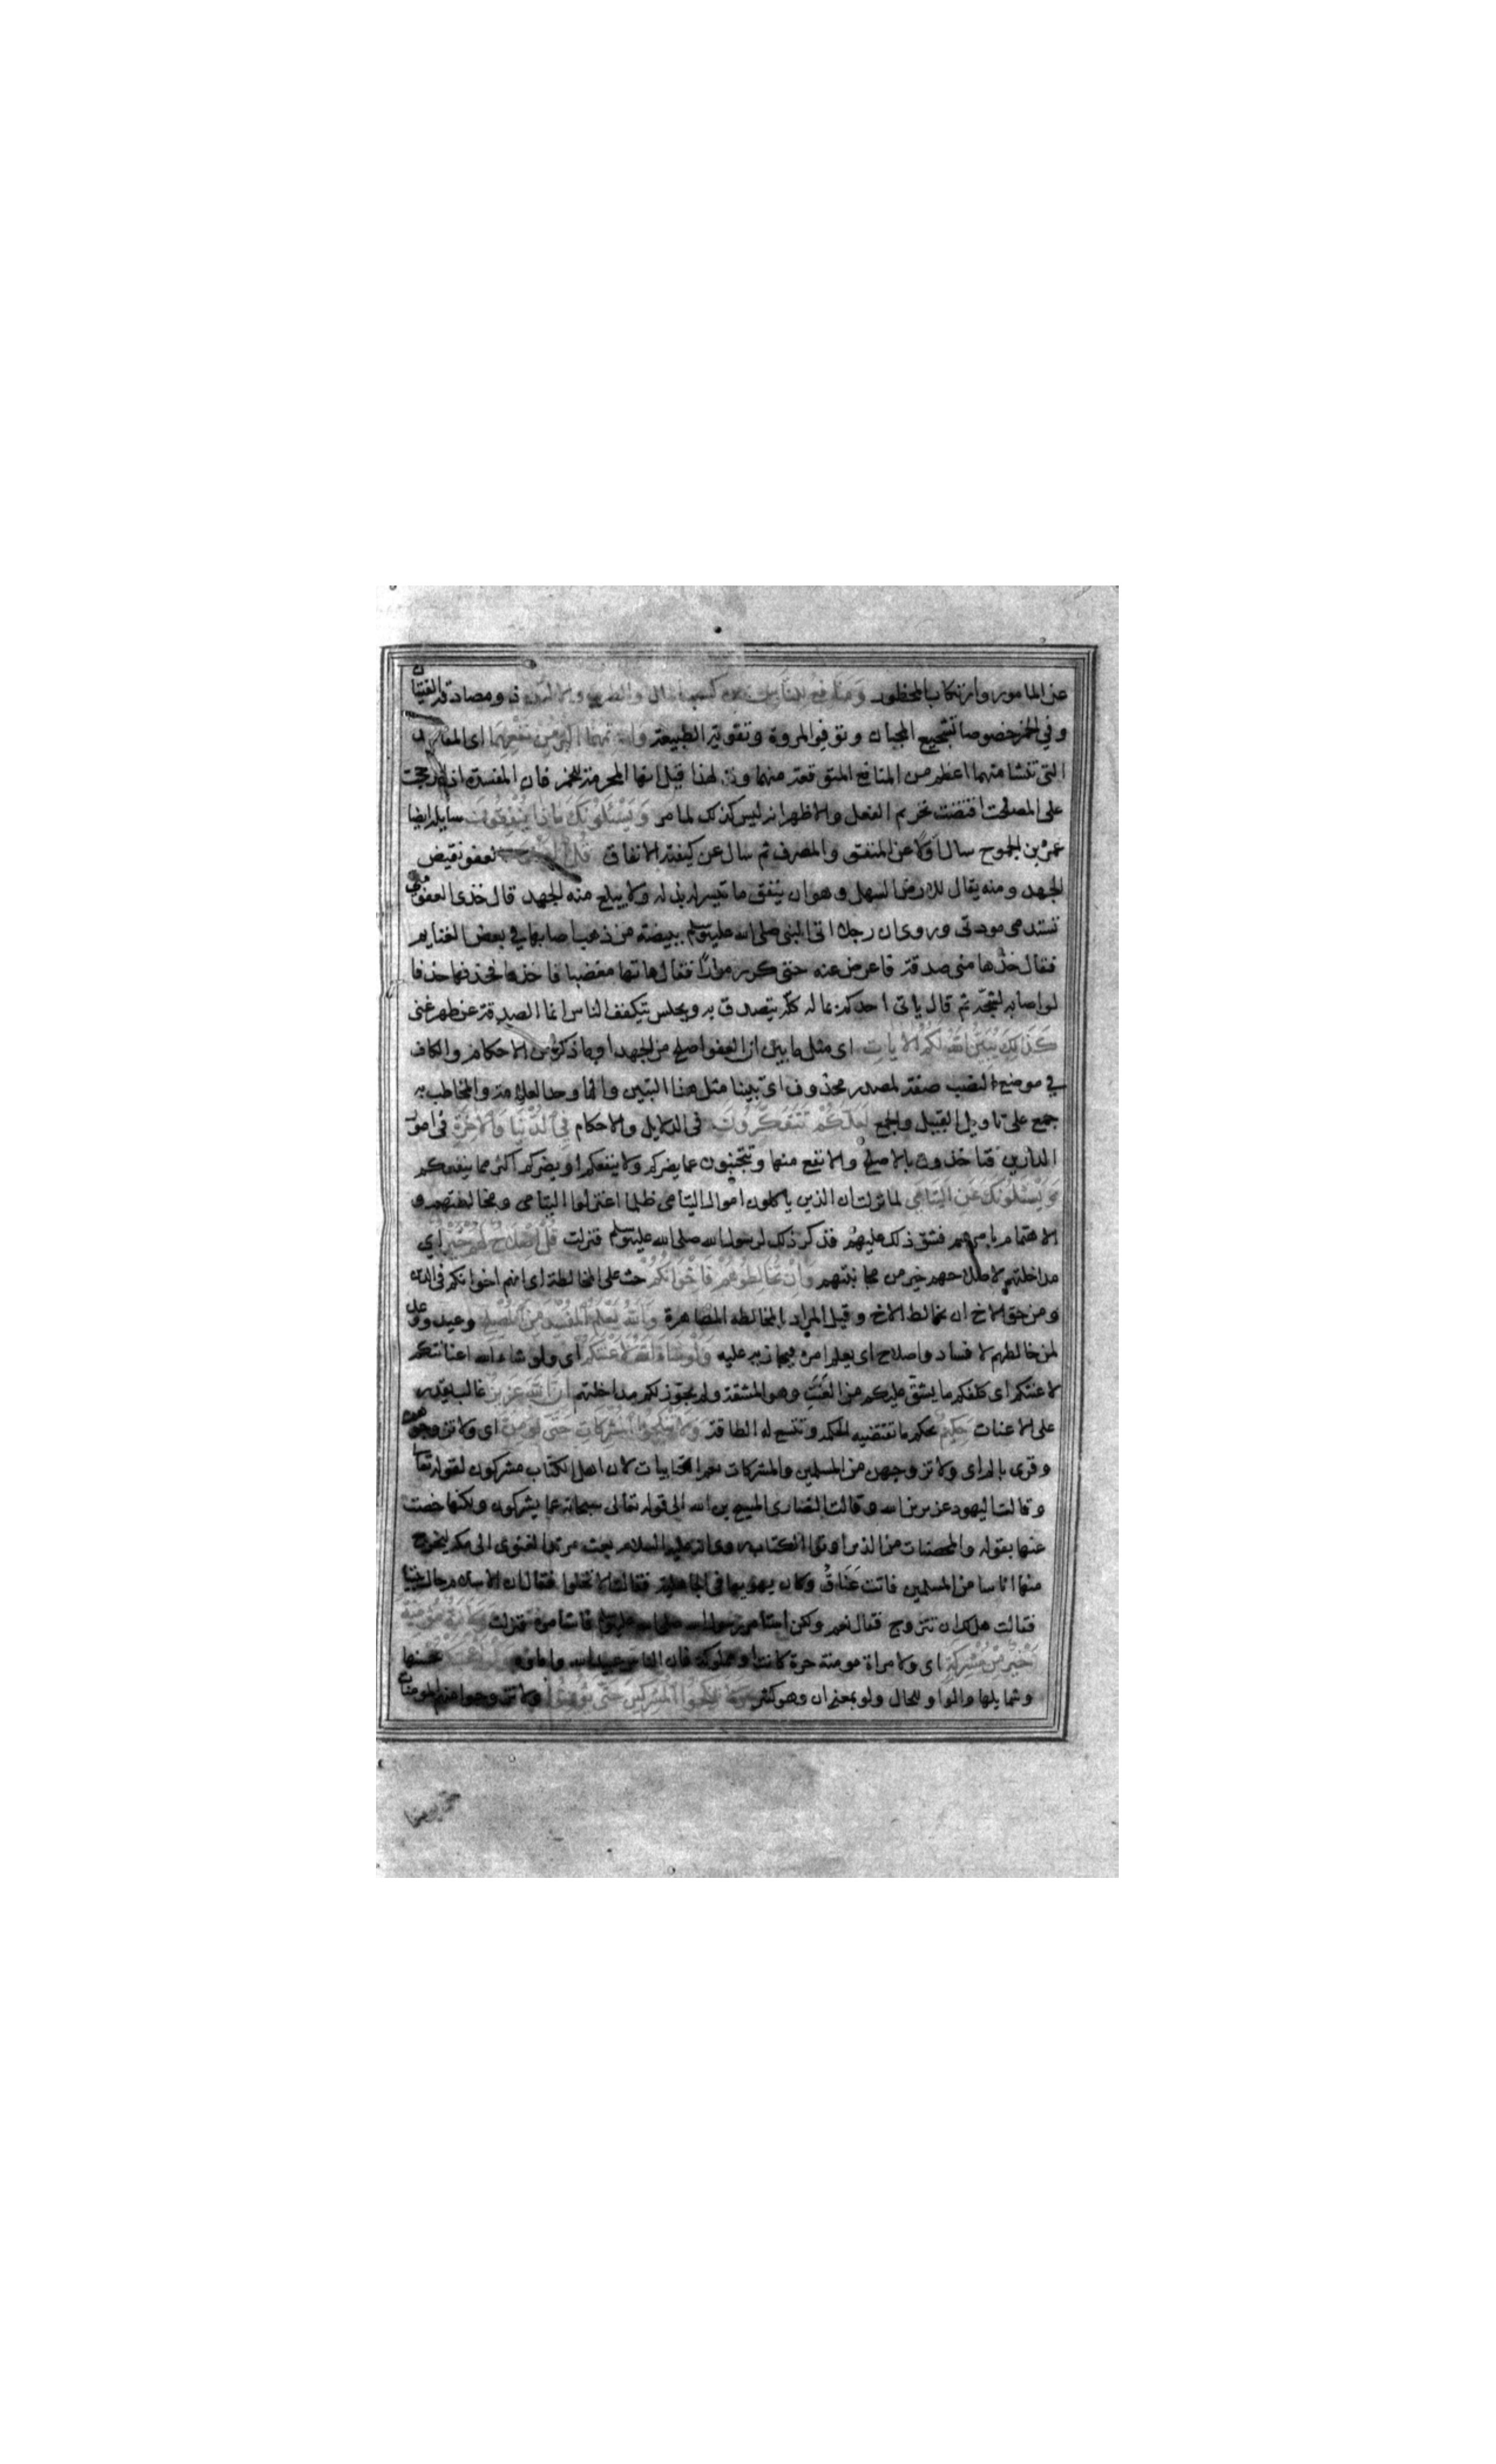 عن المامور وارتكاب المحظور وَمَنَافِعُ لِلنَّاسِ من كسب المال والطرب والالتذاذ ومصادقة الفتيان
وفي الخمر خصوصا تشجيع الجبان وتوفير المروة وتقوية الطبيعة وَإِثْمُهُمَا أَكْبَرُ مِنْ نَفْعِهِمَا اى المفاسد
التى تنشا منهما اعظم من المنافع المتوقعة منهما ولهذا قيل انها المحرمة للخمر فان المفسدة اذا ترجحت
على المصلحة اقتضت تحريم الفعل والاظهر انه ليس كذلك لما مر وَيَسْئَلُونَكَ مَاذَا يُنْفِقُونَ سايله ايضا
عمرو بن الجموح سال اولا عن المنفق والمصرف ثم سال عن كيفية الانفاق قُلِ العفو نقيض
الجهد ومنه يقال للارض السهل وهو ان ينفق ما تيسر له بذله ولا يبلغ منه الجهد قال خذى العفو منى
تستدمى مودتى وروى ان رجلا اتى النبى صلى الله عليه وسلم ببيضة من ذهب اصابها في بعض الغنايم
فقال خذها منى صدقة فاعرض عنه حتى كرر مرارا فقال هاتها مغضبا فاخذها فحذفها حذفا
لو اصابه لشجه ثم قال ياتى احدكم بماله كله يتصدق به ويجلس يتكفف الناس انما الصدقة عن ظهر غنى
كَذَلِكَ يُبَيِّنُ اللَّهُ لَكُمُ الْآيَاتِ اى مثل ما بين ان العفو اصلح من الجهد او ما ذكر من الاحكام والكاف
في موضع النصب صفة لمصدر محذوف اى تبيينا مثل هذا التبين وانما وحد العلامة والمخاطب به
جمع على تاويل القبيل والجمع لَعَلَّكُمْ تَتَفَكَّرُونَ فى الدلايل والاحكام فِي الدُّنْيَا وَالْآخِرَةِ فى امور
الدارين فتاخذون بالاصلح والانفع منها وتجتنبون عما يضركم ولا ينفعكم او يضركم اكثر مما ينفعكم
وَيَسْئَلُونَكَ عَنِ الْيَتَامَى لما نزلت ان الذين ياكلون اموال اليتامى ظلما اعتزلوا اليتامى ومخالطتهم و
الاهتمام بامرهم فشق ذلك عليهم فذكر ذلك لرسول الله صلى الله عليه وسلم فنزلت قُلْ إِصْلَاحٌ لَهُمْ خَيْرٌ اي
مداخلتهم لاصلاحهم خير من مجانبتهم وَإِنْ تُخَالِطُوهُمْ فَإِخْوَانُكُمْ حث على المخالطة اى انهم اخوانكم فى الدين
ومن حق الاخ ان يخالط الاخ وقيل المراد بالمخالطه المصاهرة وَاللَّهُ يَعْلَمُ الْمُفْسِدَ مِنَ الْمُصْلِحِ وعيد ووعد
لمن خالطهم لافساد واصلاح اى يعلم امره فيجازيه عليه وَلَوْ شَاءَ اللَّهُ لَأَعْنَتَكُمْ اى ولو شاء الله اعناتكم
لاعنتكم اى كلفكم ما يشق عليكم من العَنَتِ وهو المشقة ولم يجوز لكم مداخلتهم إِنَّ اللَّهَ عَزِيزٌ غالب يقدر
على الاعنات حَكِيمٌ يحكم ما تقتضيه الحكمة وتتسع له الطاقة وَلَا تَنْكِحُوا الْمُشْرِكَاتِ حَتَّى يُؤْمِنَّ اى ولا تزوجوهن
وقرى بالضم اى ولا تزوجهن من المسلمين والمشركات تعم الكتابيات لان اهل الكتاب مشركون لقوله تعالى
وقالت اليهود عزير بن الله وقالت النصارى المسيح بن الله الى قوله تعالى سبحانه عما يشركون ولكنها خصت
عنها بقوله والمحصنات من الذين اوتوا الكتاب روى انه عليه السلام بعث مرثدا الغنوى الى مكه ليخرج
منها اناسا من المسلمين فاتت عَنَاقُ وكان يهويها فى الجاهلية فقالت الا تخلوا فقال ان الاسلام حال بيننا
فقالت هل لك ان تتزوج فقال نعم ولكن استامر رسول الله صلى الله عليه وسلم فاستامره فنزلت وَلَأَمَةٌ مُؤْمِنَةٌ
خَيْرٌ مِنْ مُشْرِكَةٍ اى ولامراة مومنة حرة كانت او مملوكة فان الناس عبيد الله واماؤه بحسنها
وشمايلها والواو للحال ولو بمعنى ان وهو كثير وَلَا تُنْكِحُوا الْمُشْرِكِينَ حَتَّى يُؤْمِنُوا ولا تزوجوا منهم المومنات